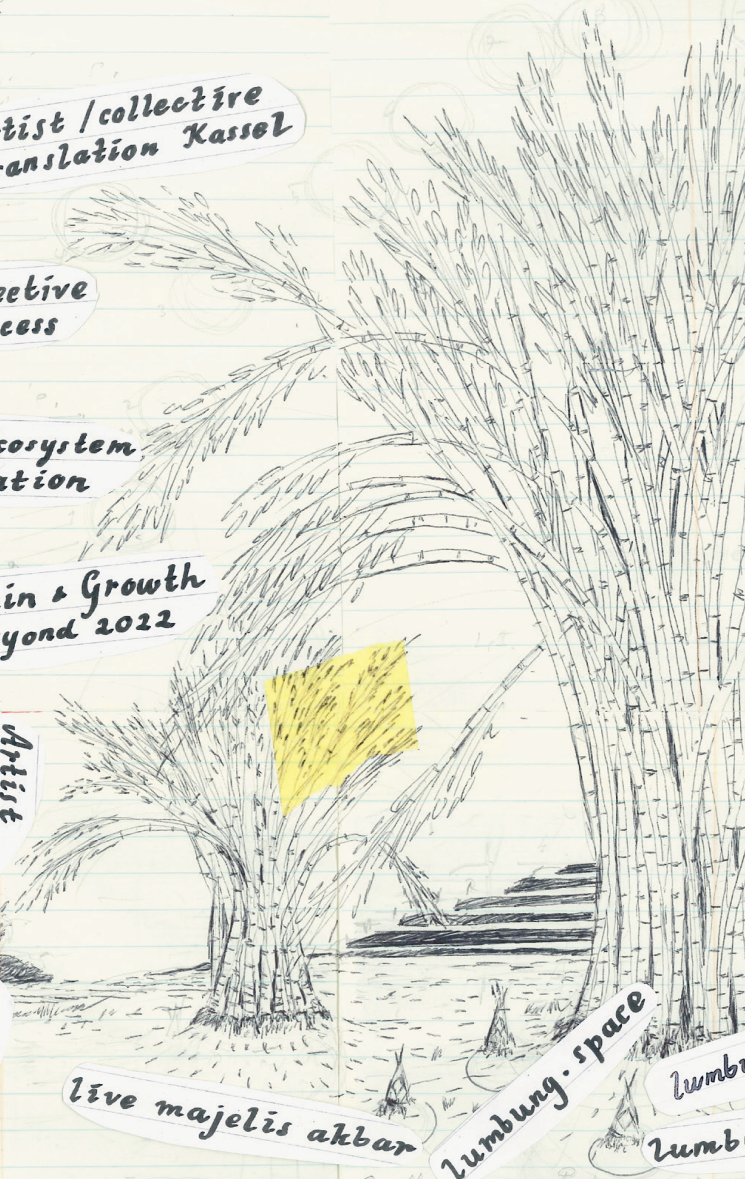 tist / collective
ranslation Kassel
ective
cess
cosystem
ation
in & Growth
yond 2022
Artist
live majelis akbar
lumbung.space
lumbu
lumbu